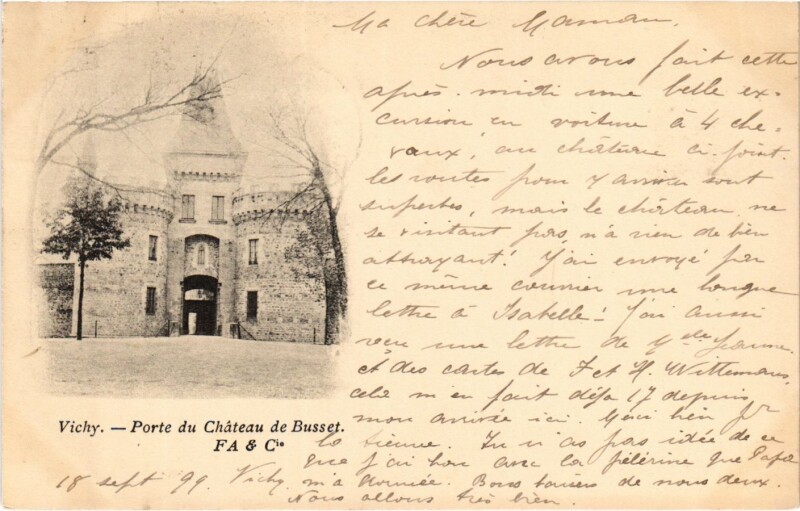 Ma chère Maman,
Nous avons fait cette
après-midi une belle ex-
cursion en voiture à 4 che-
vaux, au château ci-joint.
les routes pour y arriver sont
superbes, mais le château ne
se visitant pas, n'a rien de bien
attrayant! J'ai envoyé par
ce même courrier une longue
lettre à Isabelle! J'ai aussi
reçu une lettre de
et des cartes de F et H. Wittemans,
cela m'en fait déjà 17 depuis
mon arrivée ici. Merci bien pr
la tienne. Tu n'as pas idée de ce
que j'ai bon avec la pèlerine que Papa
m'a donnée. Bons baisers de nous deux.
Nous allons très bien.
Vichy. — Porte du Château de Busset.
FA & Cie
18 sept 99. Vichy.